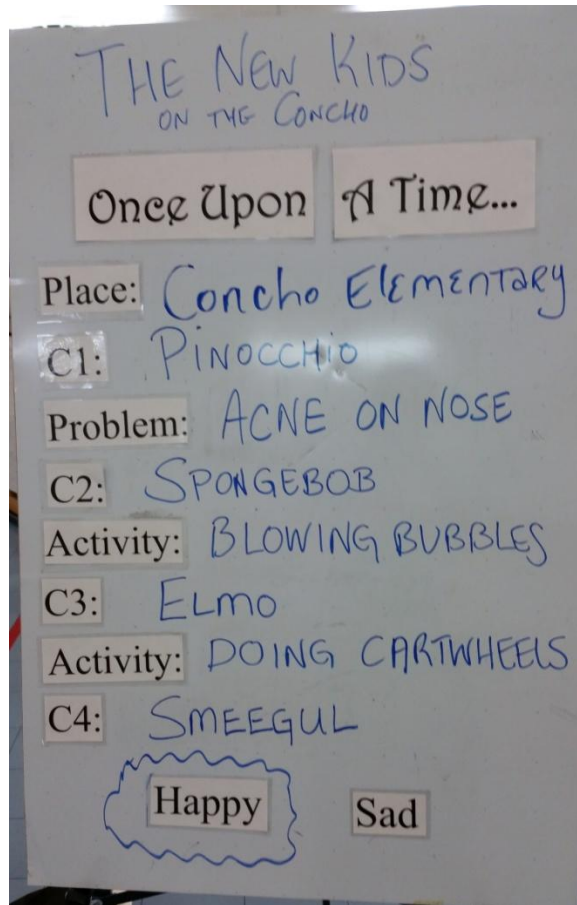 THE NEW KIDS
ON THE CONCHO
Once Upon A Time...
Place: Concho ElEmENTaRy
C1: PINOCCHiO
Problem: ACNE ON NOSE
C2: SPONGEBOB
Activity: BLOWING BUBBLES
C3: ELmo
Activity: DOING CARTWHEELS
C4: SMEEGUL
Happy Sad